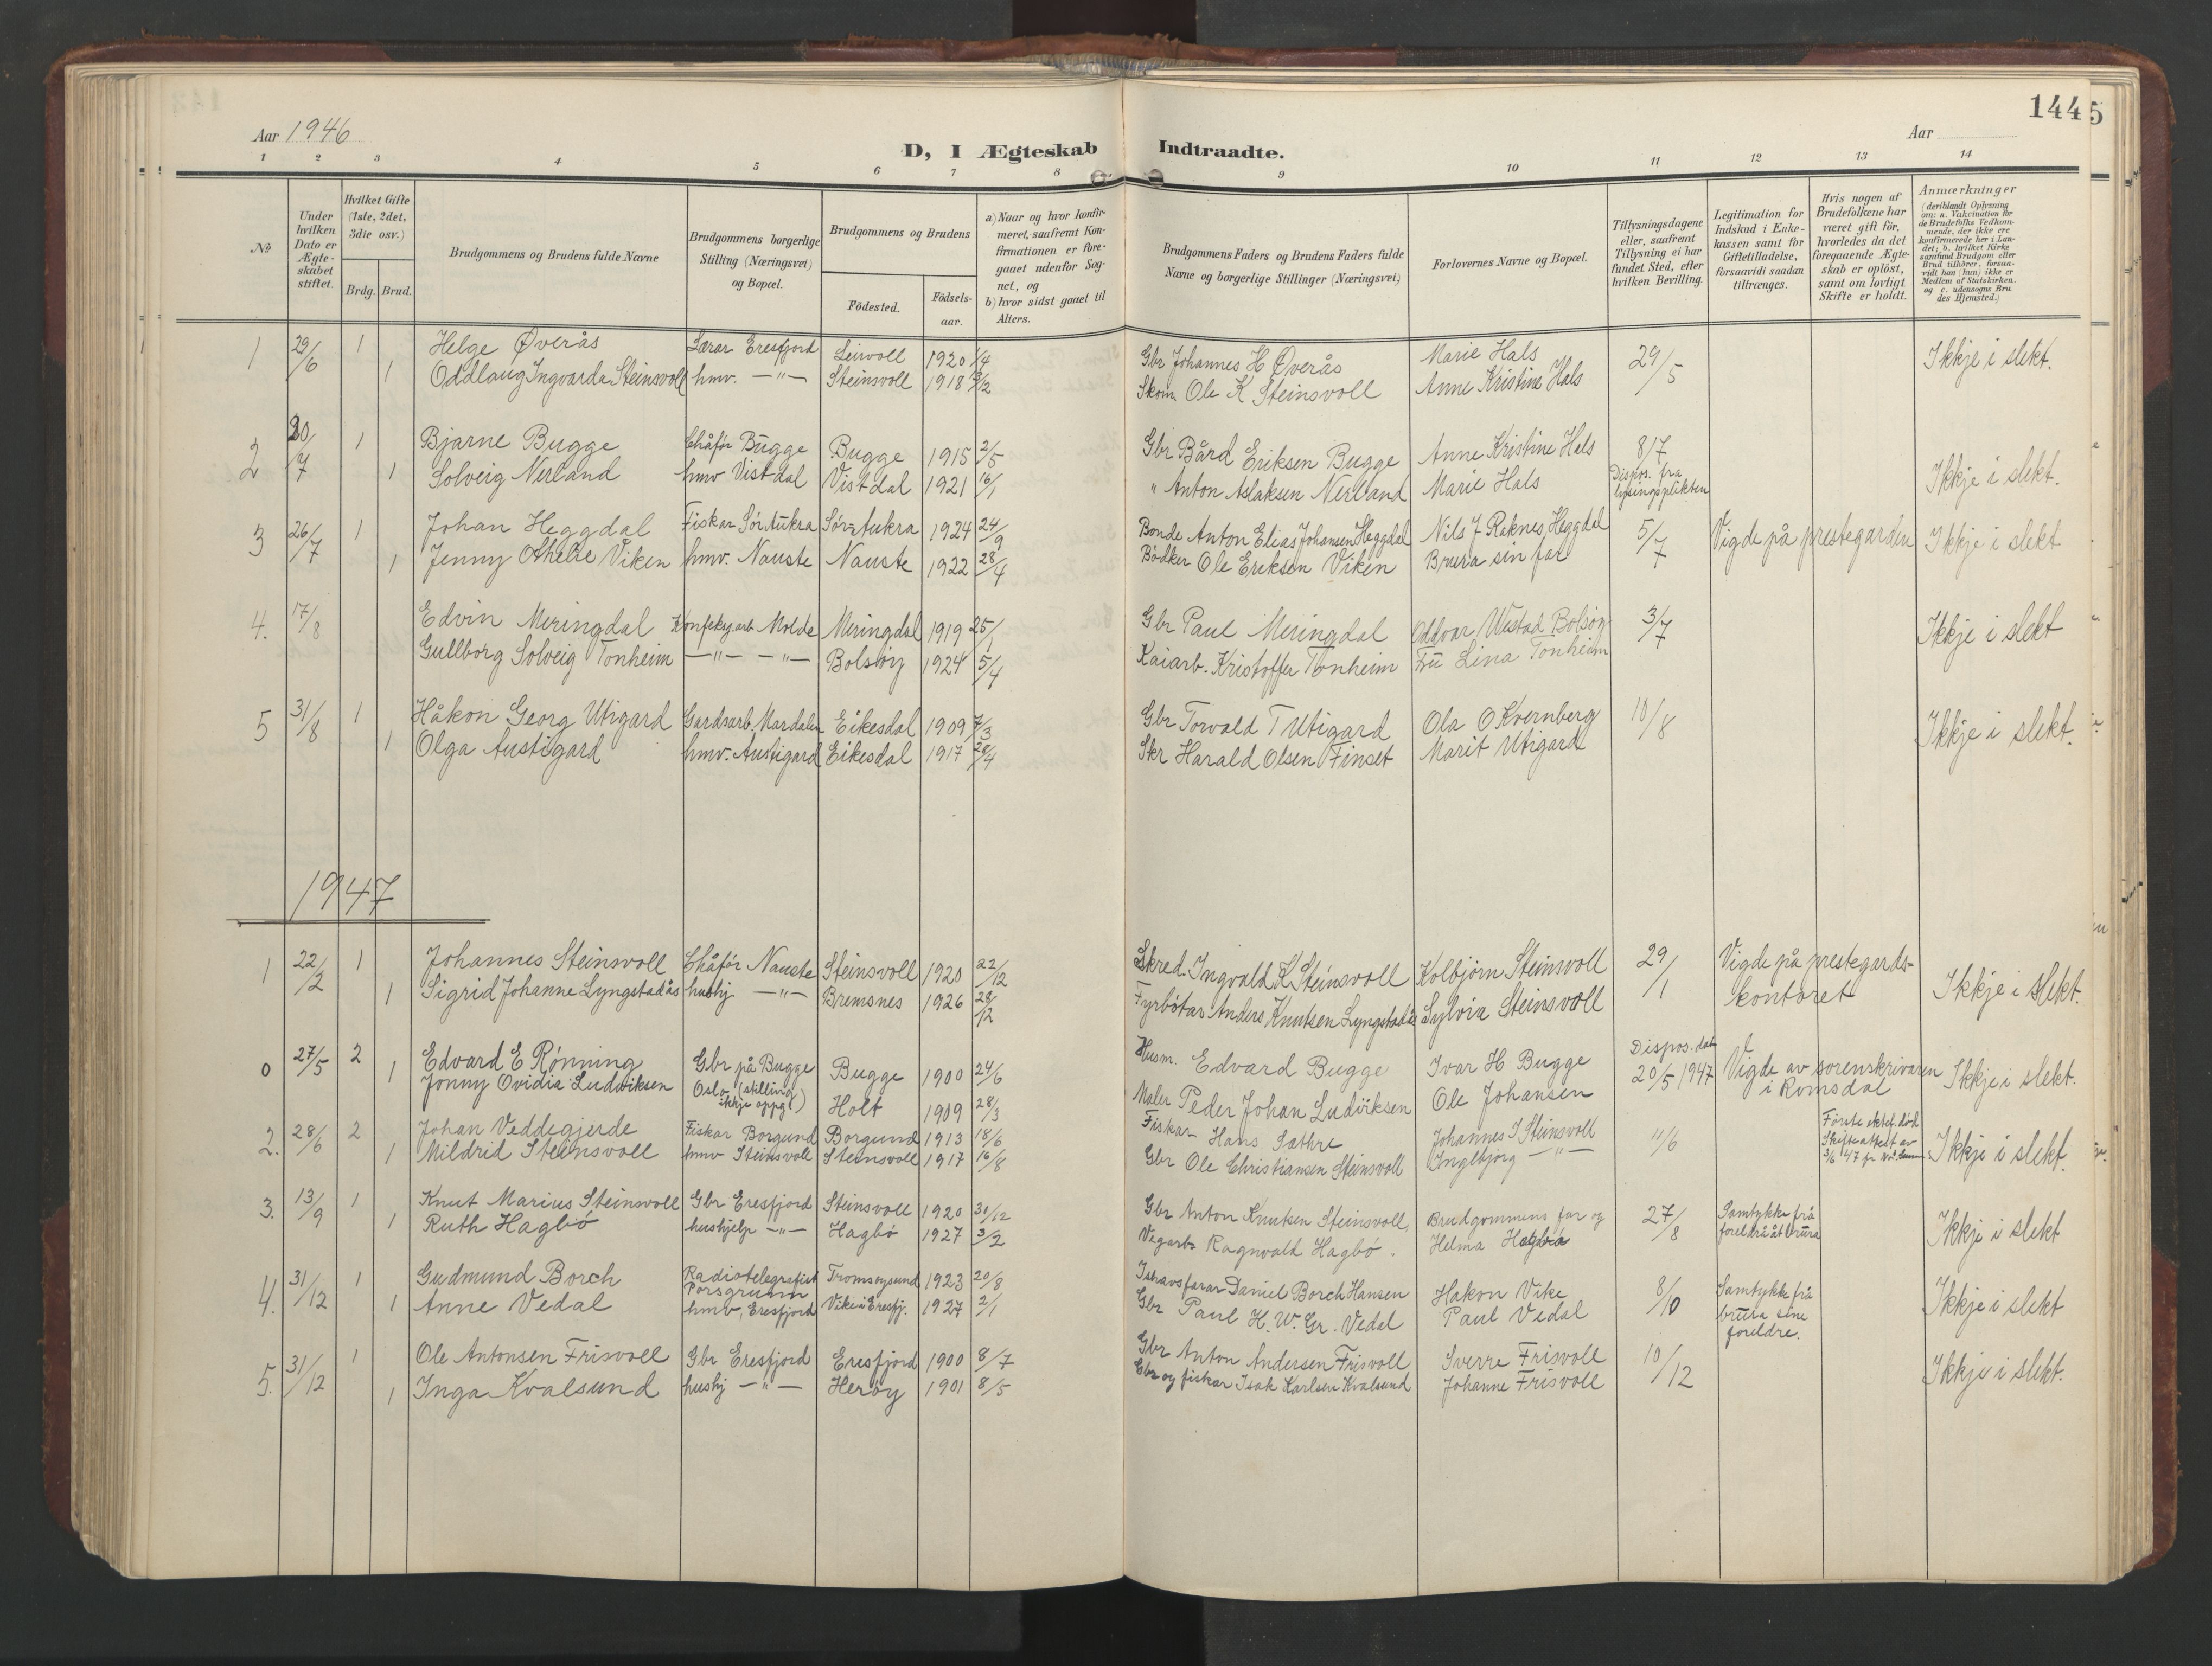 Aar 1946
D, I Ægteskab Indtraadte.
Aar
144
5
1 2 3 4 5 6 7 8 9 10 11 12 13 14
№
Under hvilken Dato er Ægteskabet stiftet.
Hvilket Gifte (1ste, 2det, 3die osv.)
Brdg. Brud.
Brudgommens og Brudens fulde Navne
Brudgommens borgerlige Stilling (Næringsvei) og Bopæl.
Brudgommens og Brudens
Födested.
Födsels-aar.
a) Naar og hvor konfirmeret, saafremt Konfirmationen er foregaaet udenfor Sognet, og
b) hvor sidst gaaet til Alters.
Brudgommens Faders og Brudens Faders fulde Navne og borgerlige Stillinger (Næringsvei)
Forlovernes Navne og Bopæl.
Tillysningsdagene eller, saafremt Tillysning ei har fundet Sted, efter hvilken Bevilling.
Legitimation for Indskud i Enkekassen samt for Giftetilladelse, forsaavidt saadan tiltrænges.
Hvis nogen af Brudefolkene har været gift för, hvorledes da det foregaaende Ægteskab er oplöst, samt om lovligt Skifte er holdt.
Anmærkninger (deriblandt Oplysning om: a. Vakcination for de Brudefolks Vedkommende, der ikke ere konfirmerede her i Landet; b. hvilket Kirkesamfund Brudgom eller Brud tilhörer, forsaavidt han (hun) ikke er Medlem af Statskirken. og c. udensogns Brudes Hjemsted.)
1 29/6 1 Helge Øverås Lærar Eresfjord Leirvoll 1920 1/4 Gbr Johannes H Øverås Marie Hals 29/5 Ikkje i slekt.
1 Oddlaug Ingvarda Steinsvoll hmv. —"— Steinsvoll 1918 3/2 Skom. Ole K Steinsvoll Anne Kristine Hals
2 20/7 1 Bjarne Bugge Chåfør Bugge Bugge 1915 2/5 Gbr Bård Eriksen Bugge Anne Kristine Hals 8/7 Ikkje i slekt.
1 Solveig Nerland hmv Vistdal Vistdal 1921 16/1 " Anton Aslaksen Nerland Marie Hals Dispos. fra lysingsplikten
3 26/7 1 Johan Heggdal Fiskar Sør Aukra Sør-Aukra 1924 24/9 Bonde Anton Elias Johansen Heggdal Nils J Raknes, Heggdal 5/7 Vigde på prestegarden Ikkje i slekt
1 Jenny Viken hmv. Nauste Nauste 1922 28/4 Bødker Ole Eriksen Viken Brura sin far
4. 17/8 Edvin Meringdal Konfeksj.arb Molde Meringdal 1919 25/1 Gbr Paul Meringdal Oddvar Bolsøy 3/7 Ikkje i slekt
Gullborg Solveig Tonheim —"— —"— Bolsøy 1924 5/4 Kaiarb. Kristoffer Tonheim Frū Lina Tonheim
5 31/8 1 Håkon Georg Utigard Gardsarb. Mardalen Eikesdal 1909 7/3 Gbr Torvald T Utigard Ola O Kvernberg 10/8 Ikkje i slekt.
1 Olga Austigard hmv. Austigard Eikesdal 1917 28/4 Skr Harald Olsen Finset Marit Utigard
1947
1 22/2 1 Johannes Steinsvoll Chåfør Nauste Steinsvoll 1920 22/12 Skred. Ingvald K Steinsvoll Kolbjørn Steinsvoll 29/1 Vigde på prestegards-kontoret Ikkje i slekt.
1 Sigrid Johanne Lyngstadås hushj —"— Bremsnes 1926 28/12 Fyrbøtar Anders Knutsen Lyngstadås Sylvia Steinsvoll
0 27/5 2 Edvard E Rønning Gbr på Bugge Bugge 1900 24/6 Husm. Edvard Bugge Ivar H Bugge Dispos. dat 20/5 1947 Vigde av sorenskrivaren i Romsdal Ikkje i slekt.
1 Jonny Ovidia Ludviksen Oslo (stilling ikkje oppg.) Holt 1909 28/3 Maler Peder Johan Ludviksen Ole Johansen
2. 28/6 2 Johan Veddegjerde Fiskar Borgund Borgund 1913 18/6 Fiskar Hans Sæthre Johannes J Steinsvoll 11/6 Første ektef. død Skifteattest av 3/6 47 Ikkje i slekt.
1 Mildrid Steinsvoll hmv Steinsvoll Steinsvoll 1917 16/8 Gbr Ole Christiansen Steinsvoll Ingebjørg —"—
3. 13/9 1 Knut Marius Steinsvoll Gbr Eresfjord Steinsvoll 1920 30/12 Gbr Anton Knutsen Steinsvoll. Brudgommens far og 27/8 Samtykke frå foreldrå åt brura Ikkje i slekt
1 Ruth Hagbø hushjelp —"— Hagbø 1927 3/2 Vegarb Ragnvald Hagbø. Helma Hagbø
4. 31/12 1 Gudmund Borch Radiotelegrafist Porsgrunn Tromsøysund 1923 20/8 Ishavsfarar Daniel Borch Hansen Håkon Vike 8/10 Samtykke frå brura sine foreldre. Ikkje i slekt
1 Anne Vedal hmv, Eresfjord Vike i Eresfj. 1927 2/1 Gbr Paul H. W. Gr. Vedal Paul Vedal
5. 31/12 1 Ole Antonsen Frisvoll Gbr Eresfjord Eresfjord 1900 8/7 Gbr Anton Andersen Frisvoll Sverre Frisvoll 10/12 Ikkje i slekt.
1 Inga Kvalsund hushj —"— Herøy 1901 8/5 Gbr og fiskar Isak Karlsen Kvalsund Johanne Frisvoll